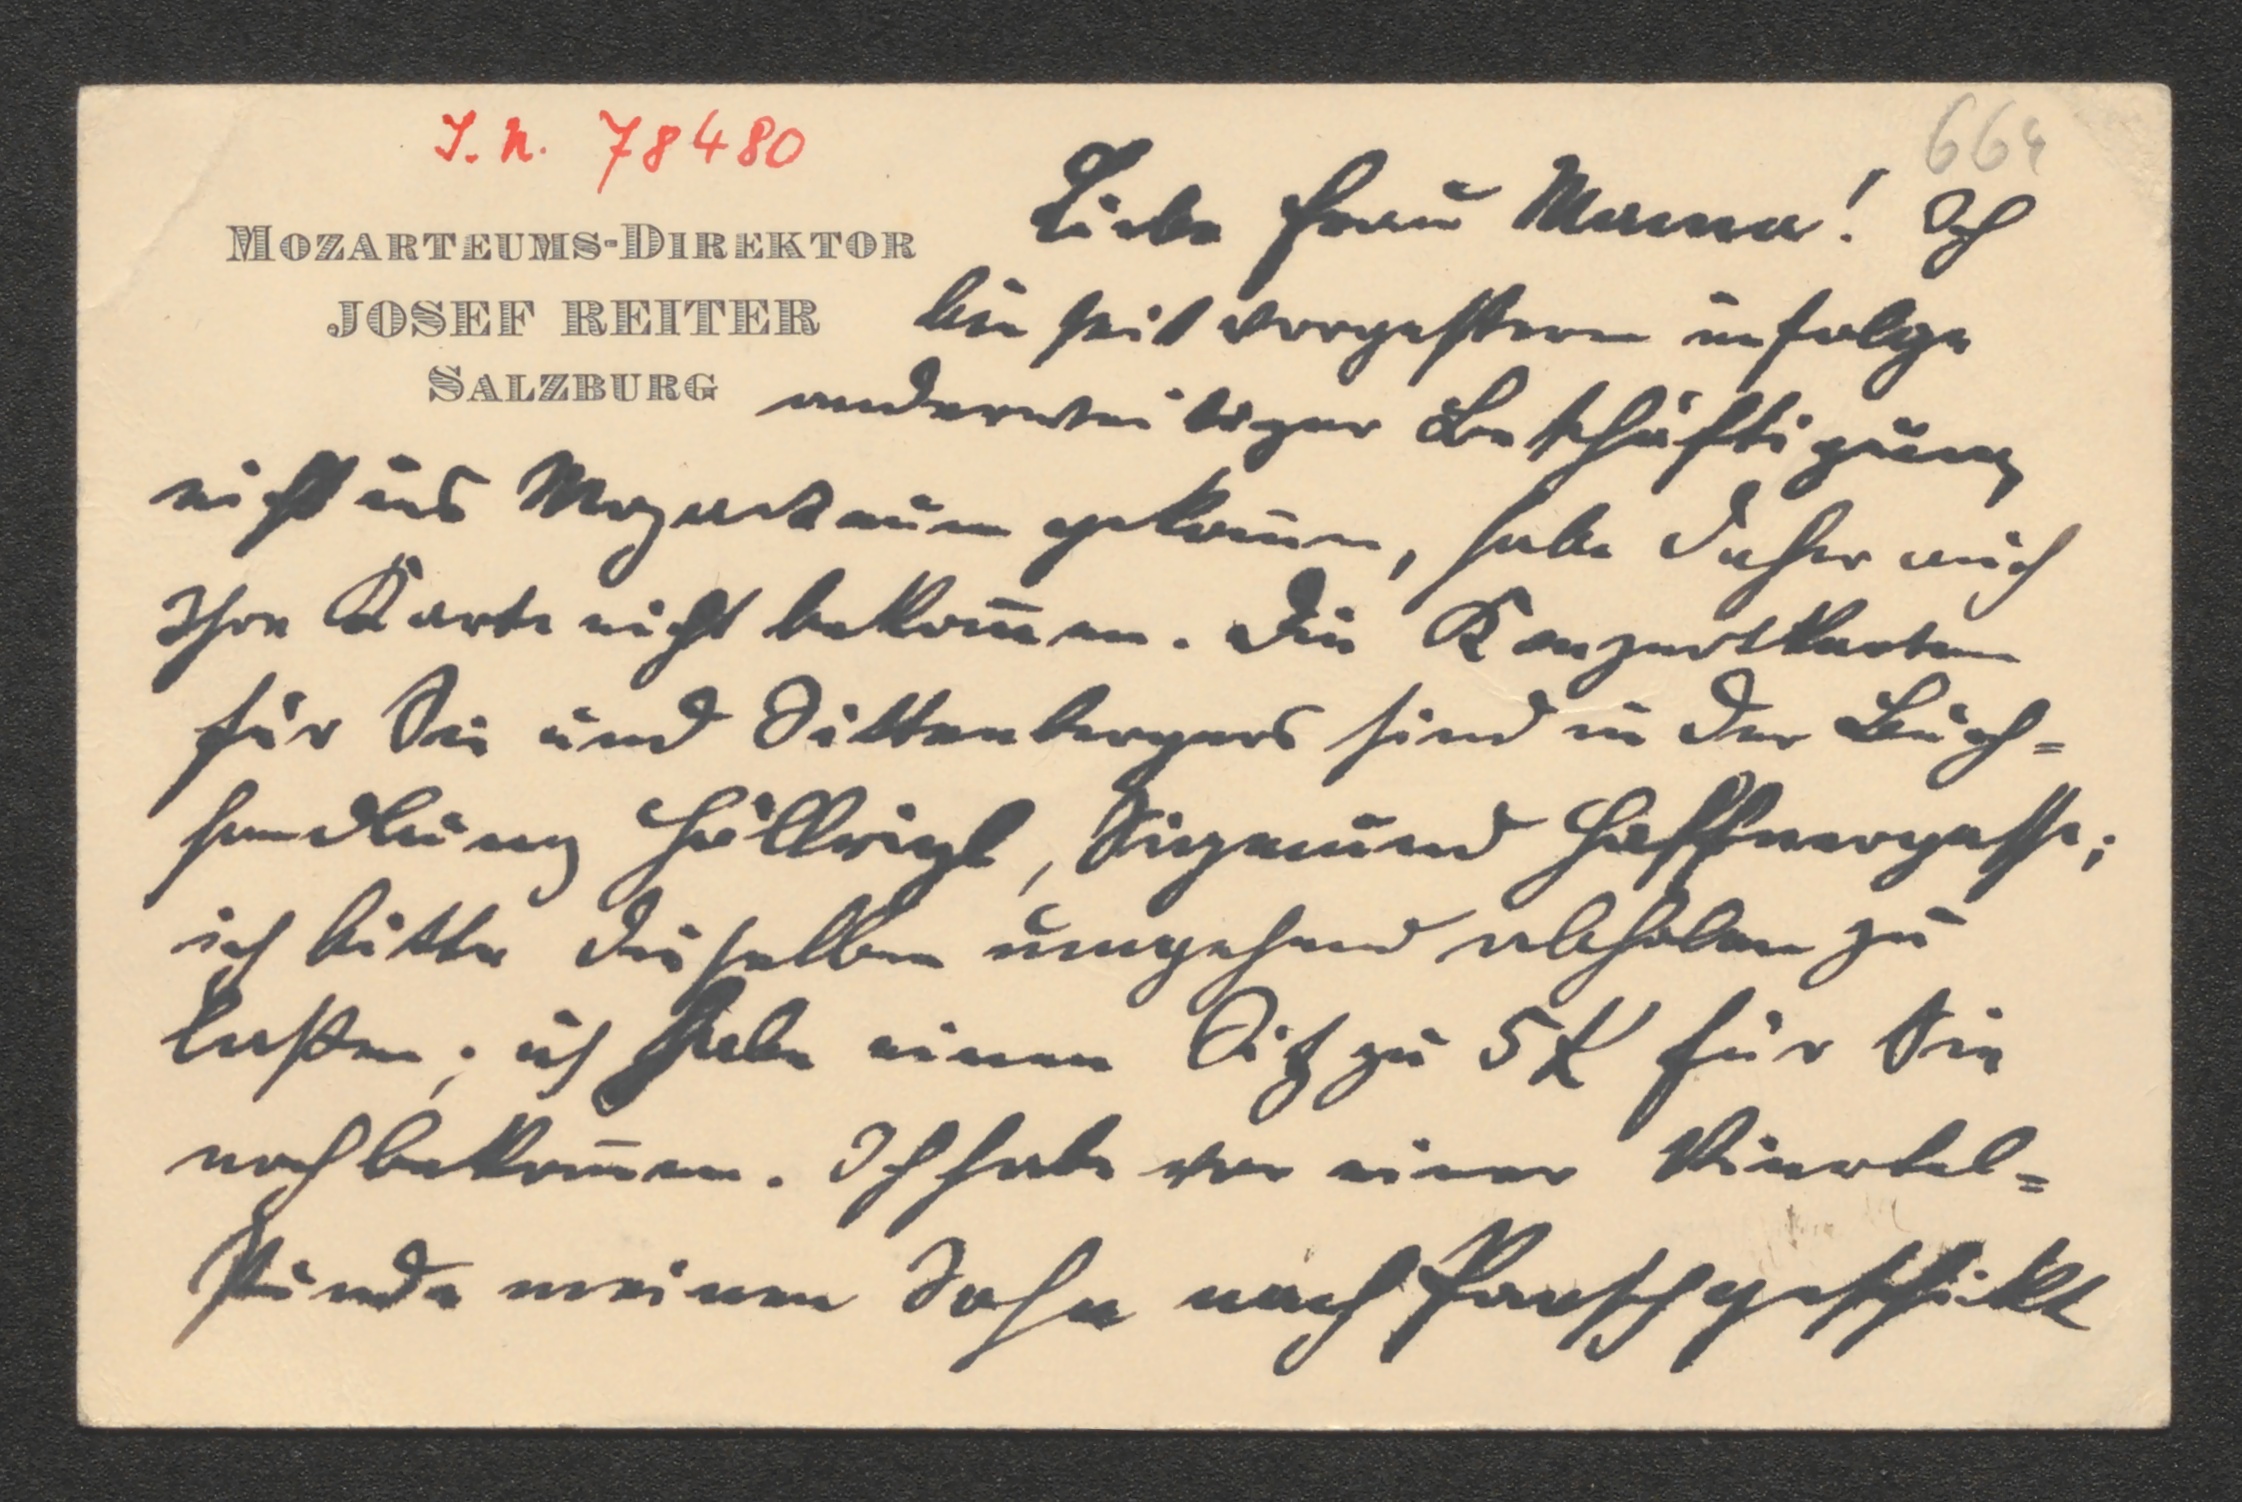 J. N. 78480
664
MOZARTEUMS-DIREKTOR
JOSEF REITER
SALZBURG
Liebe Frau Mama! Ich
bin seit vorgestern infolge
anderweitiger Beschäftigung
nicht ins Mozarteum gekom̄en, habe daher auch
Ihre Karte nicht bekom̄en. Die Konzertkarten
für Sie und Sittenbergers sind in der Buch=
handlung Höllrigl, Sigmund Haffnergasse;
ich bitte dieselben umgehend abholen zu
lassen; ich habe einen Sitz zu 5 K für Sie
noch bekom̄en. Ich habe vor einer Viertel=
stunde meinen Sohn nach Parsch geschickt